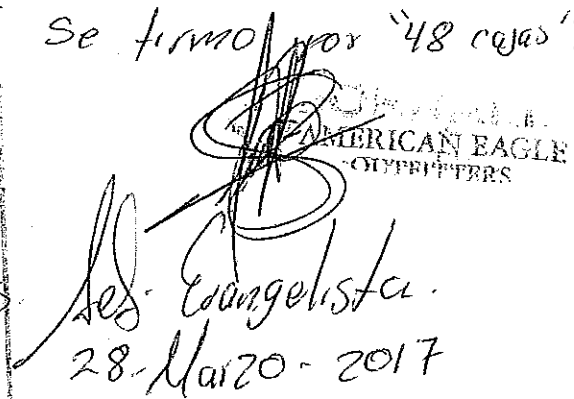 Se firmo por "48 cajas"
AMERICAN EAGLE
OUTFITTERS
Evangelista.
28-Marzo-2017